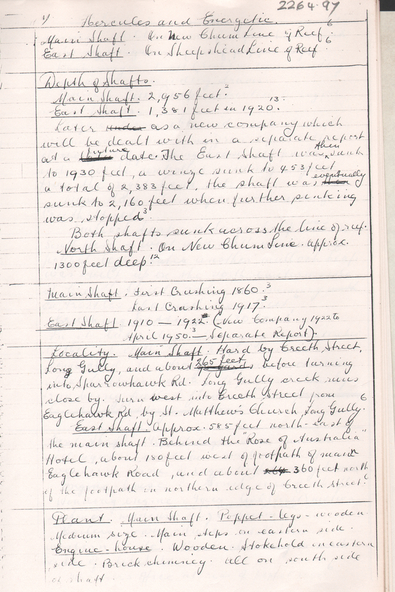 2264.97
1) Hercules and Energetic. 6
Main Shaft. On New Chum Line of Reef 6
East Shaft. On Sheepshead Line of Reef.
Depth of Shafts.
Main Shaft. 2,956 feet.
East Shaft. 1,381 feet in 1920. 13
Later as a new company which
will be dealt with in a separate report
at a future date. The East Shaft was then sunk
to 1930 feet, a winze sunk to 453 feet
a total of 2,383 feet, the shaft was eventually
sunk to 2,160 feet when further sinking
was stopped 3
Both shafts sunk across the line of reef.
North Shaft. On New Chum Line. approx.
1300 feet deep. 12
Main Shaft. First Crushing 1860. 3
Last Crushing 1917. 3
East Shaft 1910 - 1922 (New Company 1922 to
April 1950. — Separate Report).
Locality. Main Shaft. Hard by Creeth Street,
Long Gully, and about 265 feet before turning
into Sparrowhawk Rd. Long Gully creek runs
close by. Turn west into Creeth Street from
Eaglehawk Rd, by St. Matthew's Church Long Gully. 6
East Shaft. Approx. 585 feet north-east of
the main shaft. Behind the Rose of Australia
Hotel, about 130 feet west of footpath of main
Eaglehawk Road, and about 360 feet north
of the footpath in northern edge of Creeth Street.
Plant. Main Shaft. Poppet-legs - wooden
Medium size. Main steps on eastern side.
Engine-house. Wooden. Stokehold on eastern
side. Brick chimney all on south side
of shaft.